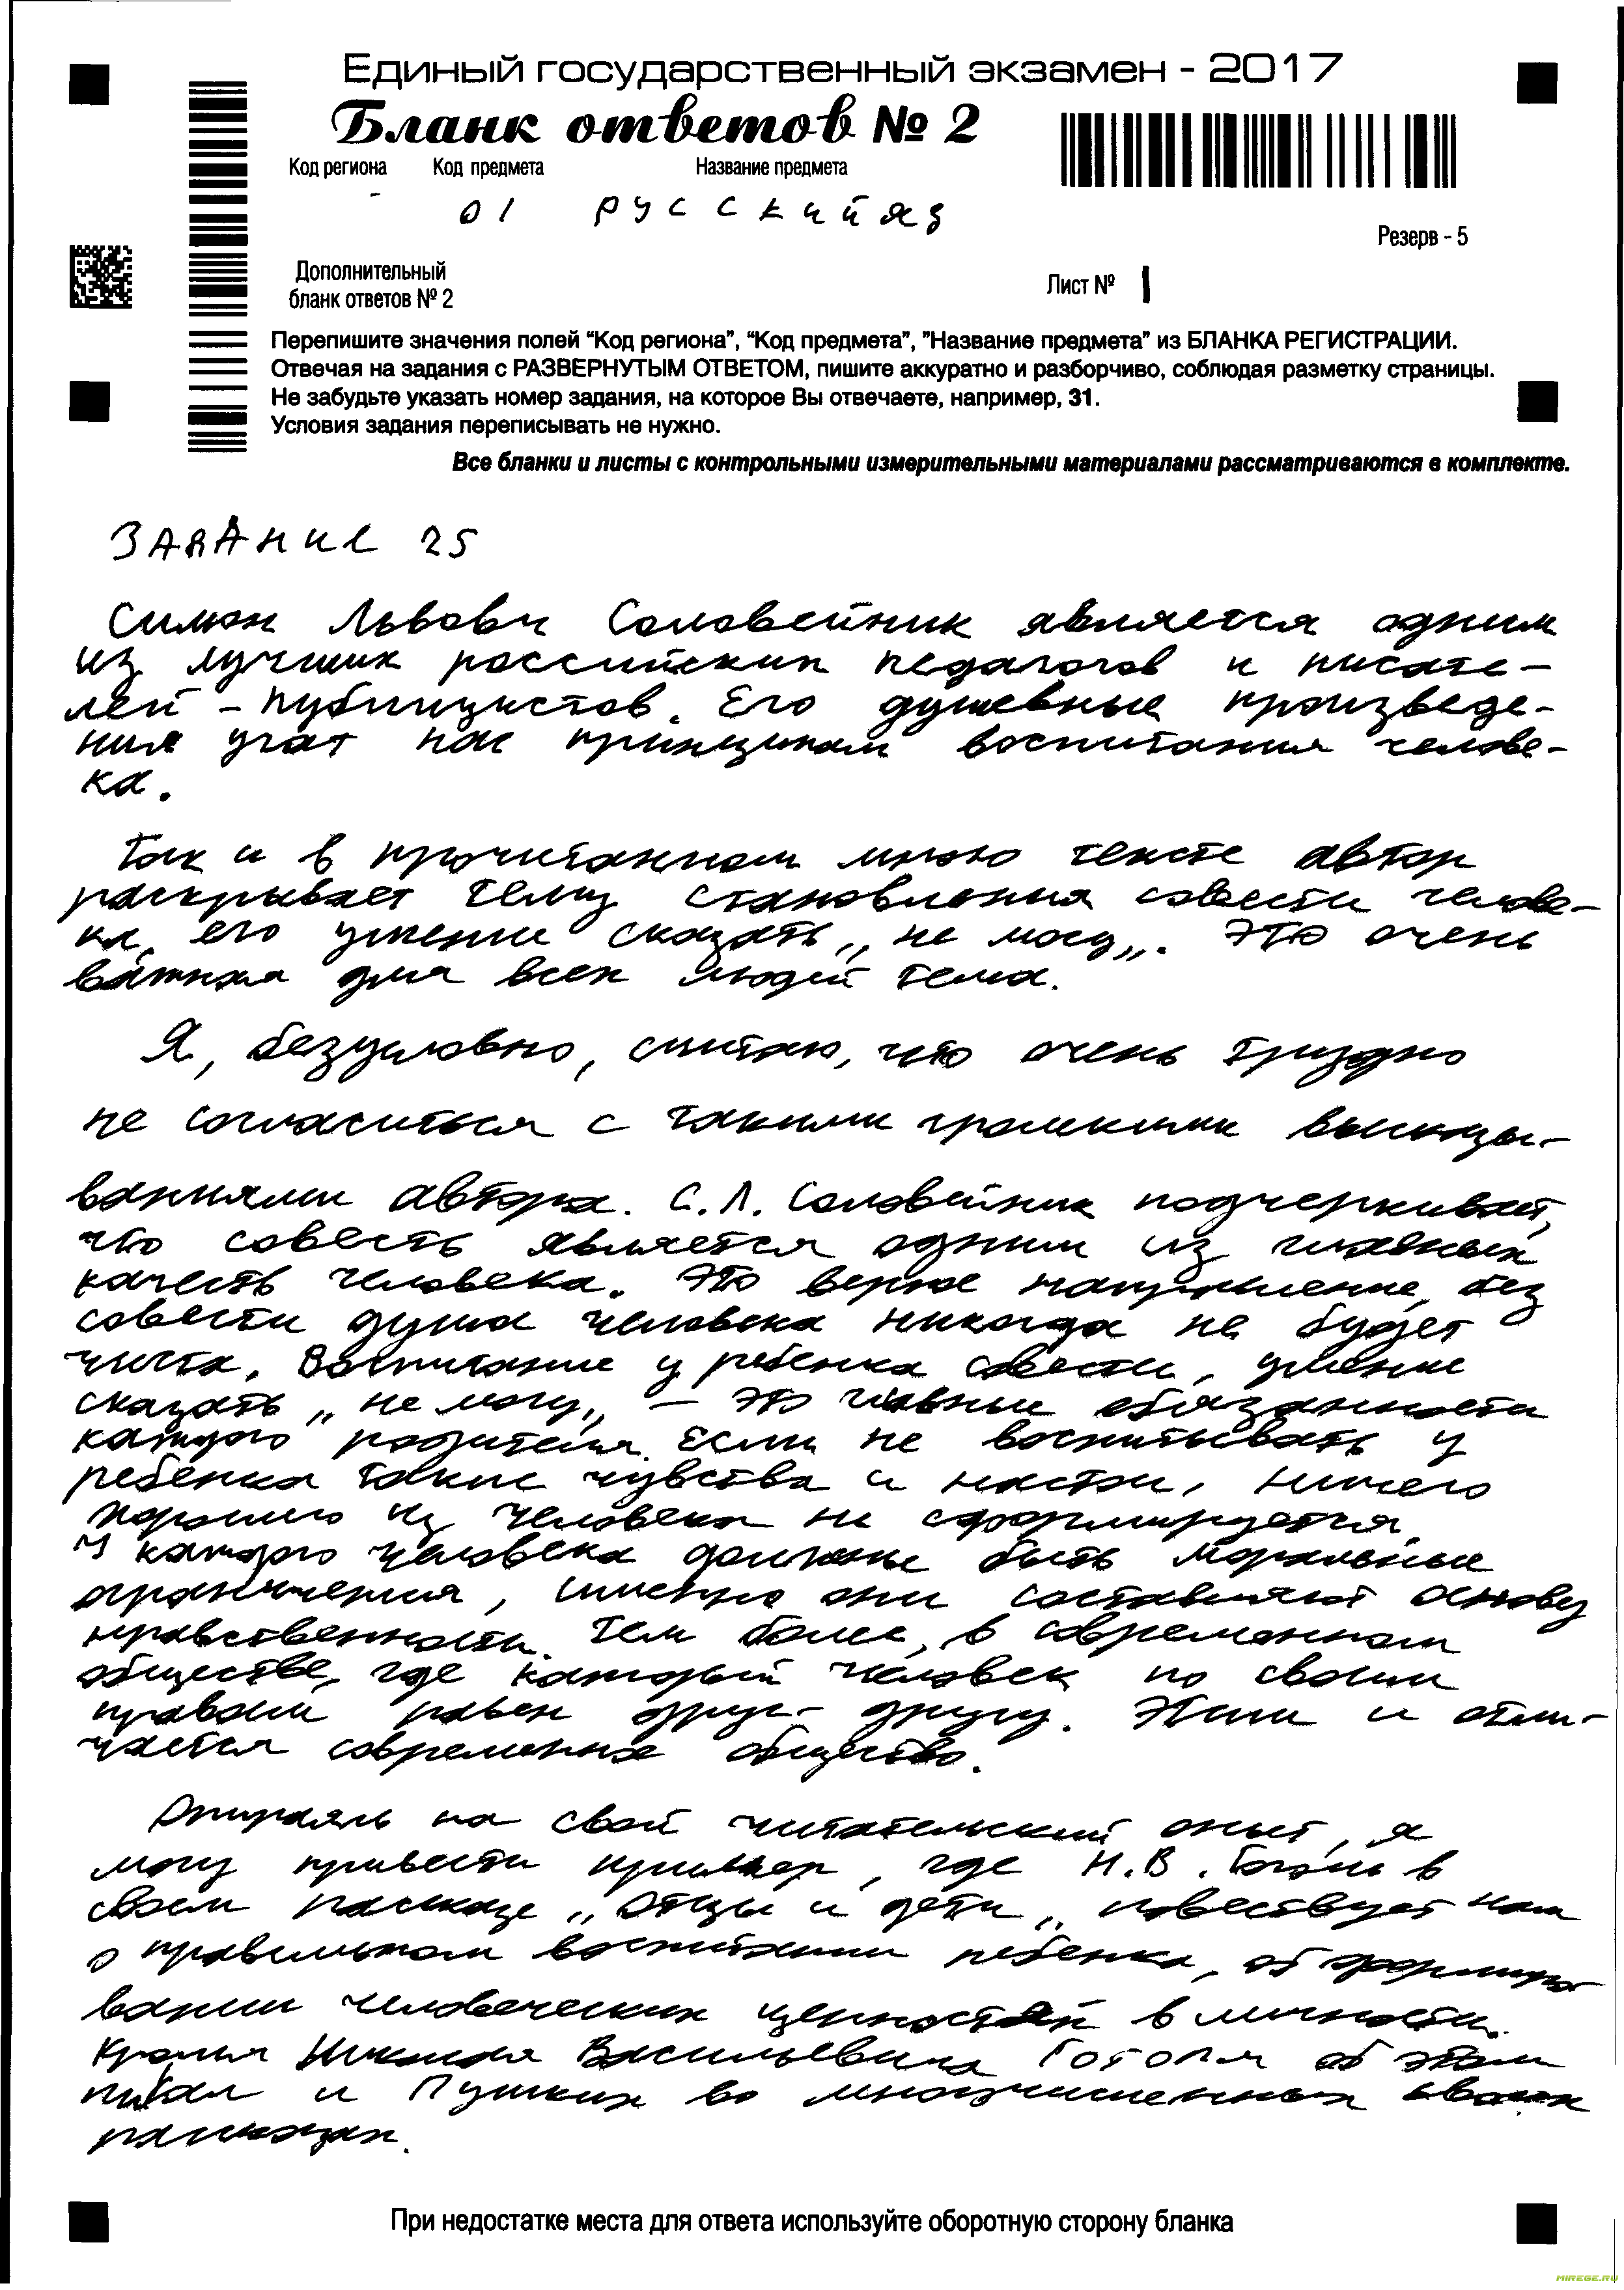 Единый государственный экзамен - 2017
Бланк ответов № 2
Код региона Код предмета Название предмета
- 01 РУССКИЙ ЯЗ
Резерв - 5
Дополнительный
бланк ответов № 2
Лист № 1
Перепишите значения полей “Код региона”, “Код предмета”, "Название предмета" из БЛАНКА РЕГИСТРАЦИИ.
Отвечая на задания с РАЗВЕРНУТЫМ ОТВЕТОМ, пишите аккуратно и разборчиво, соблюдая разметку страницы.
Не забудьте указать номер задания, на которое Вы отвечаете, например, 31.
Условия задания переписывать не нужно.
Все бланки и листы с контрольными измерительными материалами рассматриваются в комплекте.
ЗАДАНИЕ 25
Симон Львович Соловейчик является одним
из лучших российских педагогов и писате-
лей - публицистов. Его душевные произведе-
ния учат нас принципам воспитания челове-
ка.
Так и в прочитанном мною тексте автор
раскрывает тему становления совести челове-
ка, его умении сказать „ не могу „. Это очень
важная для всех людей тема.
Я, безусловно, считаю, что очень трудно
не согласиться с такими громкими высказы-
ваниями автора. С.Л. Соловейчик подчеркивает,
что совесть является одним из главных
качеств человека. Это верное направление, без
совести душа человека никогда не будет
чиста. Воспитание у ребенка совести, умение
сказать „ не могу „ - это главные обязанности
каждого родителя. Если не воспитывать у
ребенка такие чувства и
хорошего из человека не сформируется.
У каждого человека должны быть моральные
ограничения, именно они составляют основу
нравственности. Тем более, в современном
обществе, где каждый человек по своим
правам равен друг - другу. Этим и отли-
чается современное общество.
Опираясь на свой читательский опыт, я
могу привести пример, где Н.В. Гоголь в
своем рассказе „ Отцы и дети „ повествует нам
о правильном воспитании ребенка, об формиро
вании человеческих ценностей в личности.
Кроме Николая Васильевича Гоголя об этом
писал и Пушкин во многочисленных своих
рассказах.
При недостатке места для ответа используйте оборотную сторону бланка
MIREGE.RU